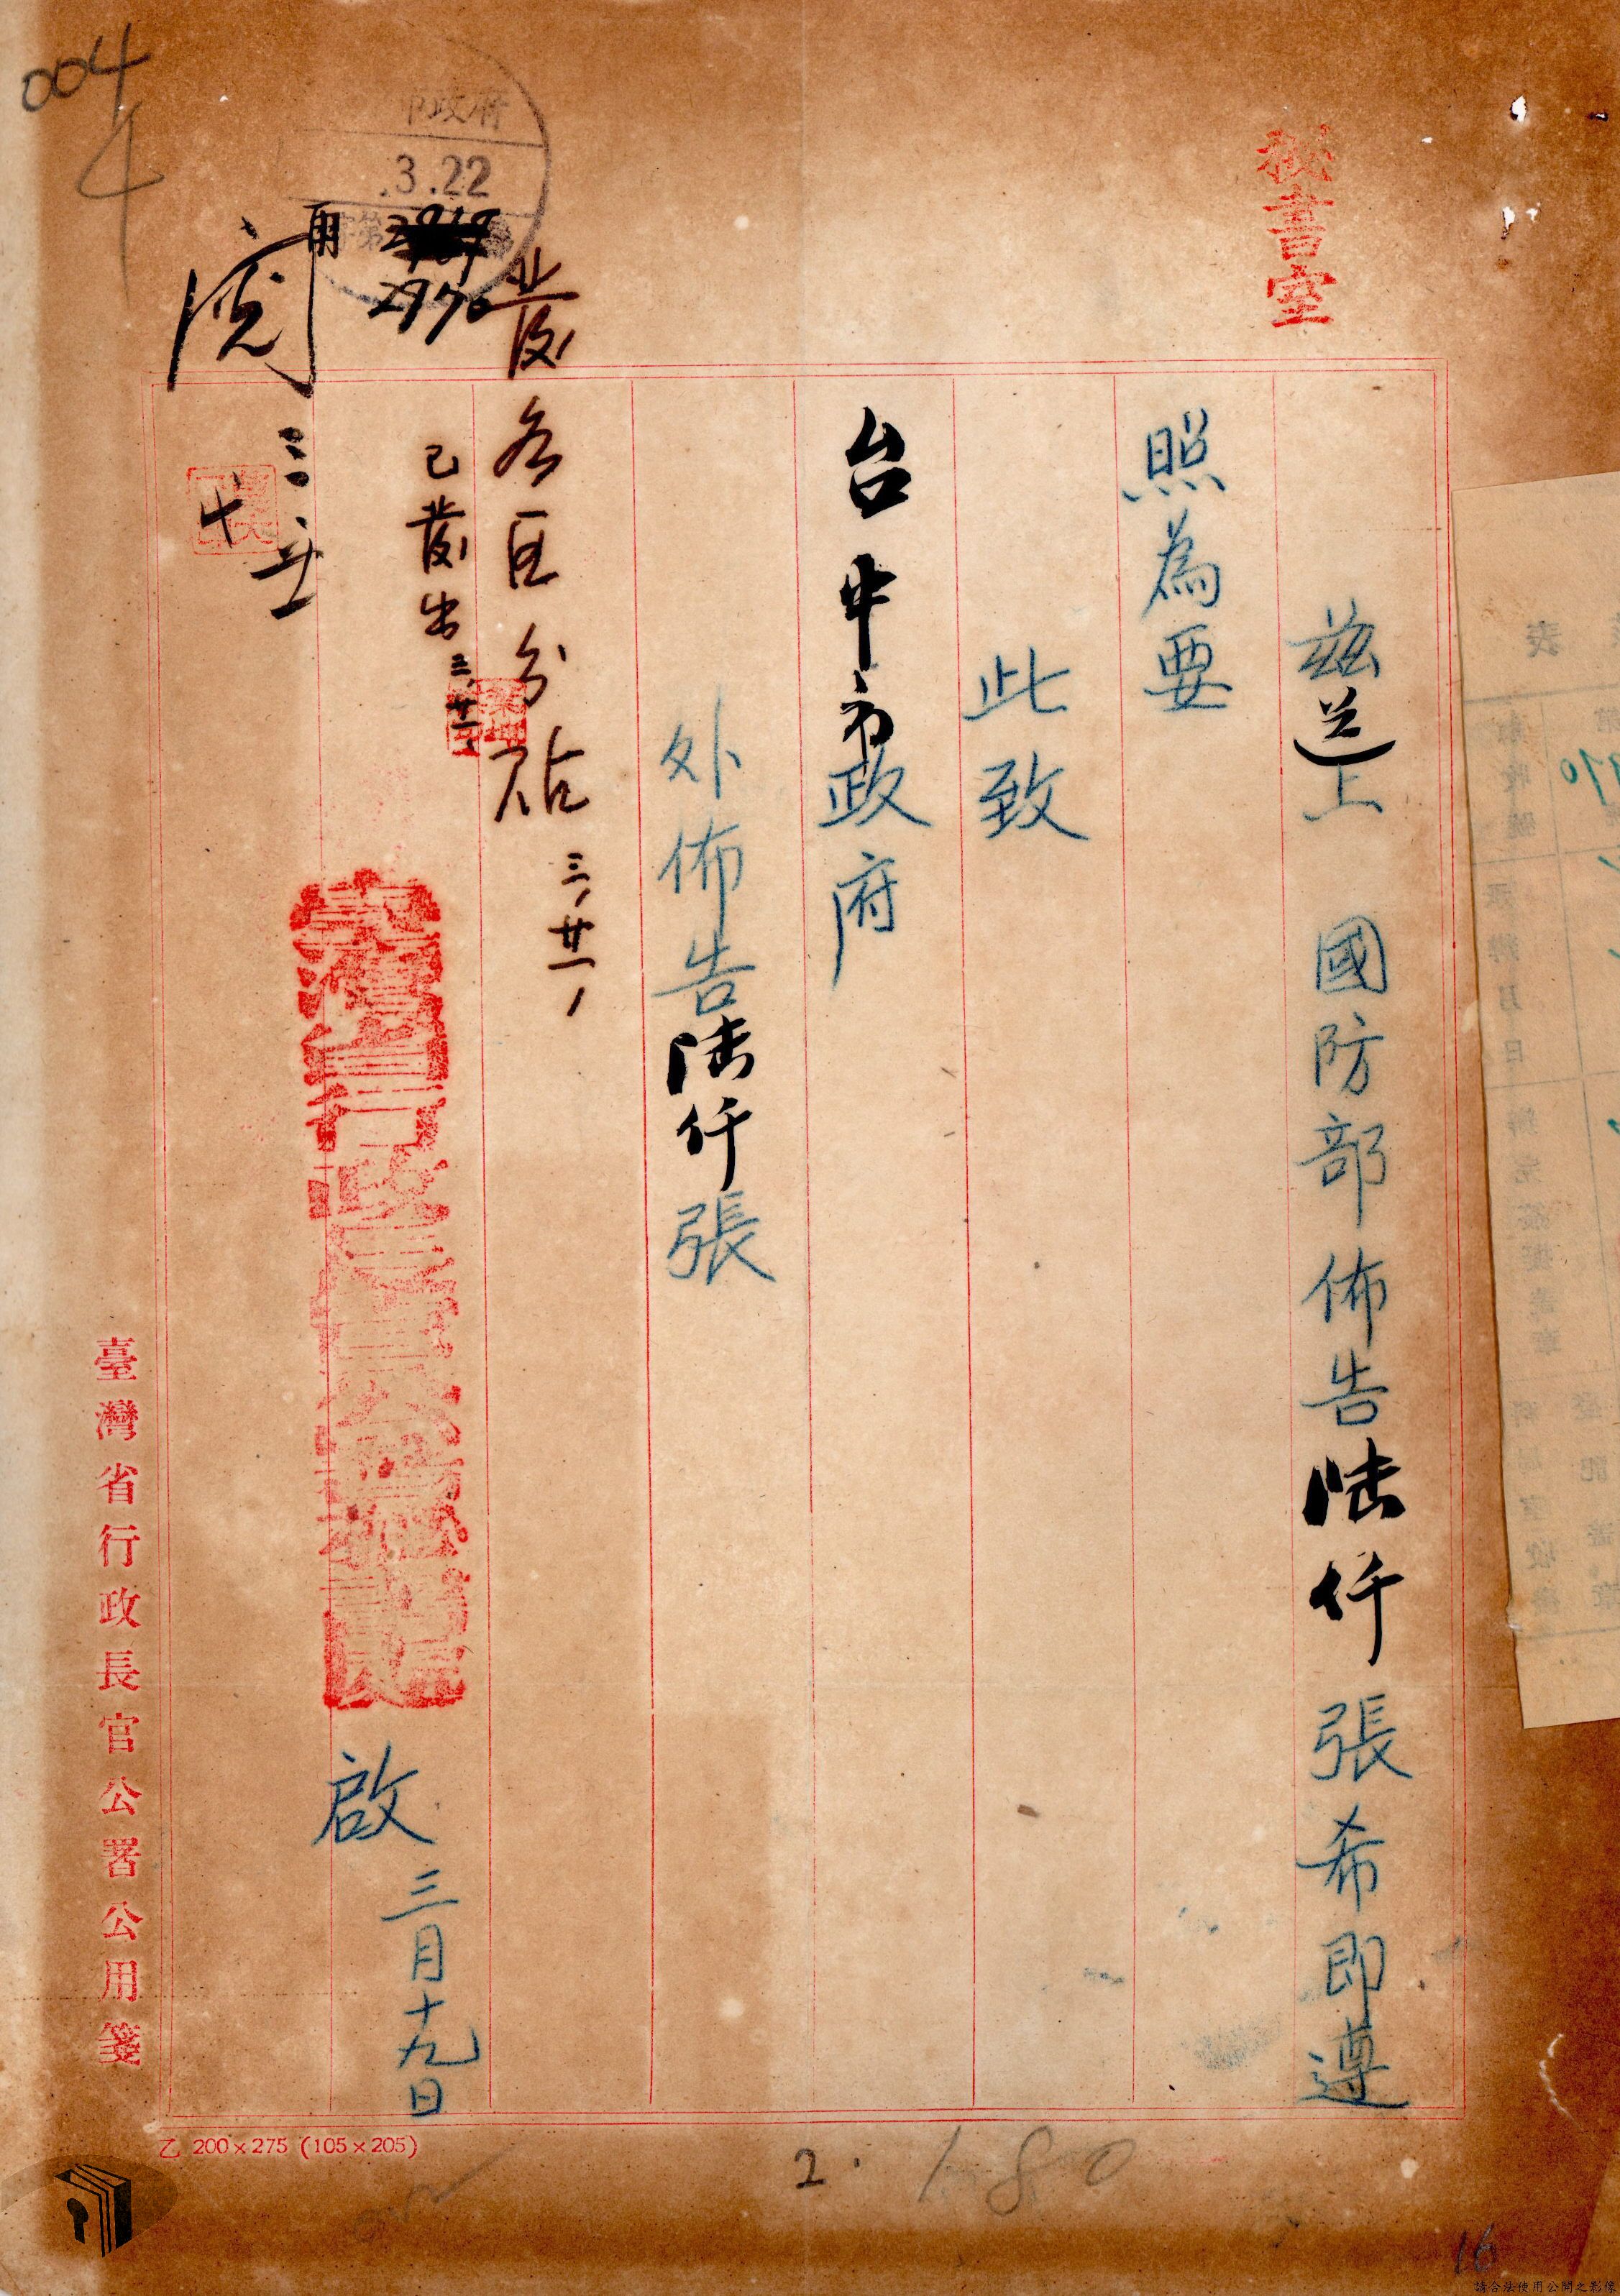 秘書室
茲送上 國防部佈告陸仟張希即遵
照為要
此致
台中市政府
外佈告陸仟張
發各區分貼 三、廿一、
已發出 三、廿一、
臺灣省行政長官公署
啟 三月十九日
閱 三
臺灣省行政長官公署公用箋
市政府
.3.22
字第
2970
004
4
乙 200×275 (105×205)
2.
180
16
請合法使用公開之影像